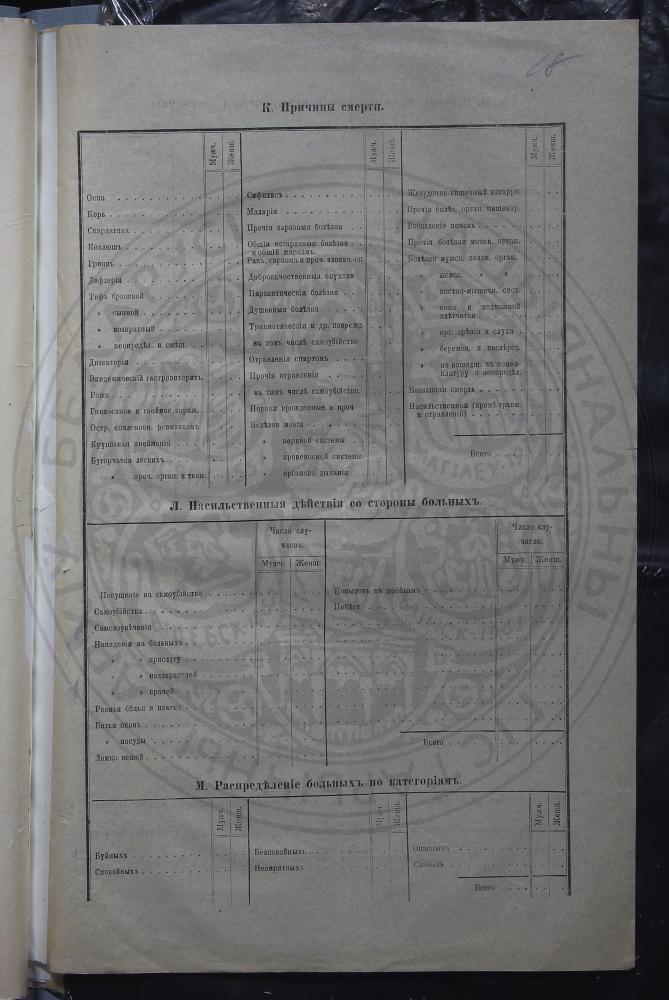 К. Причины смерти.
Мужч. Женщ.
Оспа
Корь
Скарлатина
Коклюшъ
Гриппъ
Дифтерія
Тифъ брюшной
„ сыпной
„ возвратный
„ неопредѣл. и смѣш.
Дизентерія
Эпидемическій гастроэнтеритъ.
Рожа
Гнилостное и гнойное зараж.
Остр. сочленовн. ревматизмъ
Крупозная пнеймонія
Бугорчатка легкихъ
„ проч. орган. и ткан.
Мужч. Женщ.
Сифилисъ
Малярія
Прочія заразныя болѣзни
Общія незаразныя болѣзни
и общій маразм.
Ракъ, саркома и проч. злокач. оп.
Доброкачественныя опухоли
Паразитическія болѣзни
Душевныя болѣзни
Травматическія и др. поврежд.
въ томъ числѣ самоубійство
Отравленія спиртомъ
Прочія отравленія
въ томъ числѣ самоубійство.
Пороки врожденные и проч
Болѣзни мозга
„ нервной системы
„ кровеносной системы.
„ органовъ дыханія
Мужч. Женщ.
Желудочно-кишечный катарръ.
Прочія болѣз. орган. пищевар.
Воспаленіе почекъ
Прочія болѣзни мочев. орган.
Болѣзни мужск. полов. орган.
„ женск. „ „
„ костно-мышечн. сист.
„ кожи и подкожной
клѣтчатки
„ орг. зрѣнія и слуха
„ беремен. и послѣрод.
„ не вошедш. въ номен-
клатуру и неопредѣл.
Внезапная смерть
Насильственная (кромѣ травм.
и отравленій)
Всего
Л. Насильственныя дѣйствія со стороны больныхъ.
Число слу-
чаевъ.
Мужч. Женщ.
Покушеніе на самоубійство
Самоубійства
Самоизувѣченія
Нападенія на больныхъ
„ „ прислугу
„ „ надзирателей
„ „ врачей
Рванья бѣлья и платья
Битья оконъ
„ посуды
Ломка вещей
Число слу-
чаевъ.
Мужч. Женщ.
Попытокъ къ побѣгамъ
Побѣги
Всего
М. Распредѣленіе больныхъ по категоріямъ.
Мужч. Женщ.
Буйныхъ
Спокойныхъ
Мужч. Женщ.
Безпокойныхъ
Неопрятныхъ
Мужч. Женщ.
Опасныхъ
Слабыхъ
Всего